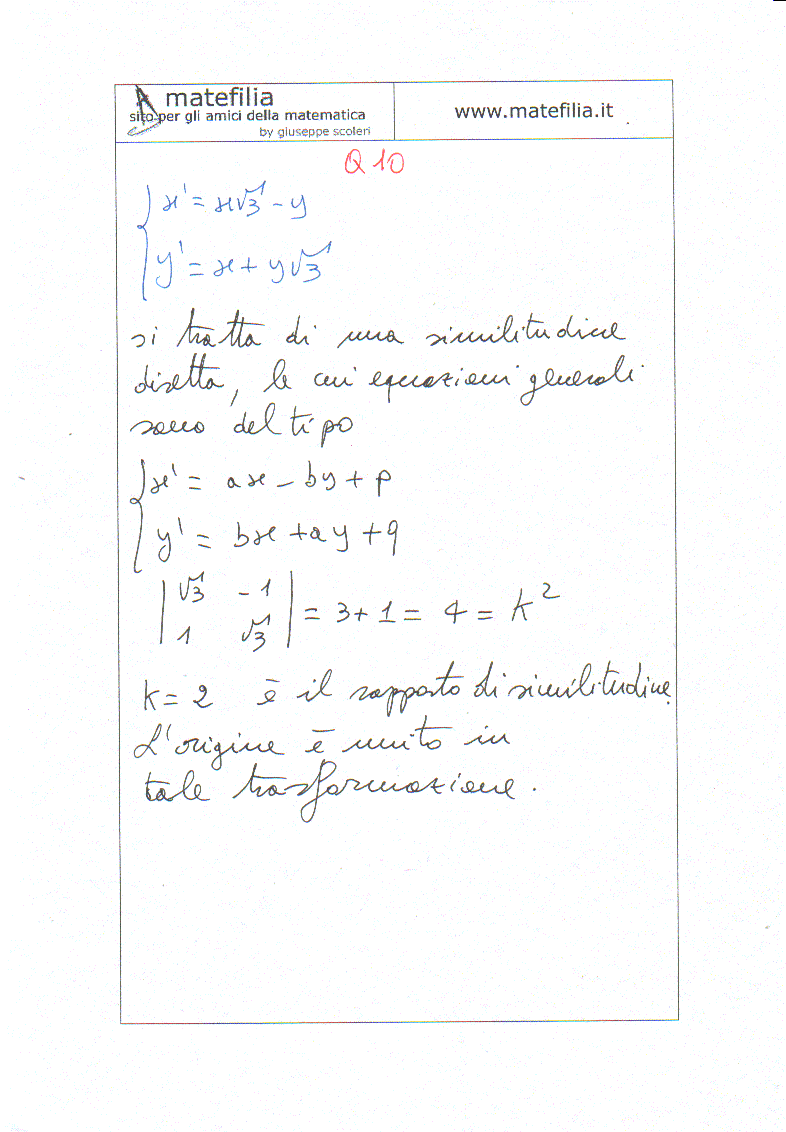 matefilia
sito per gli amici della matematica
by giuseppe scoleri
www.matefilia.it
Q 10
x' = x√3 - y
y' = x + y√3
si tratta di una similitudine
diretta, le cui equazioni generali
sono del tipo
x' = ax - by + p
y' = bx + ay + q
| √3 -1 |
| 1 √3 | = 3+1 = 4 = k²
k = 2 è il rapporto di similitudine.
L'origine è unito in
tale trasformazione.